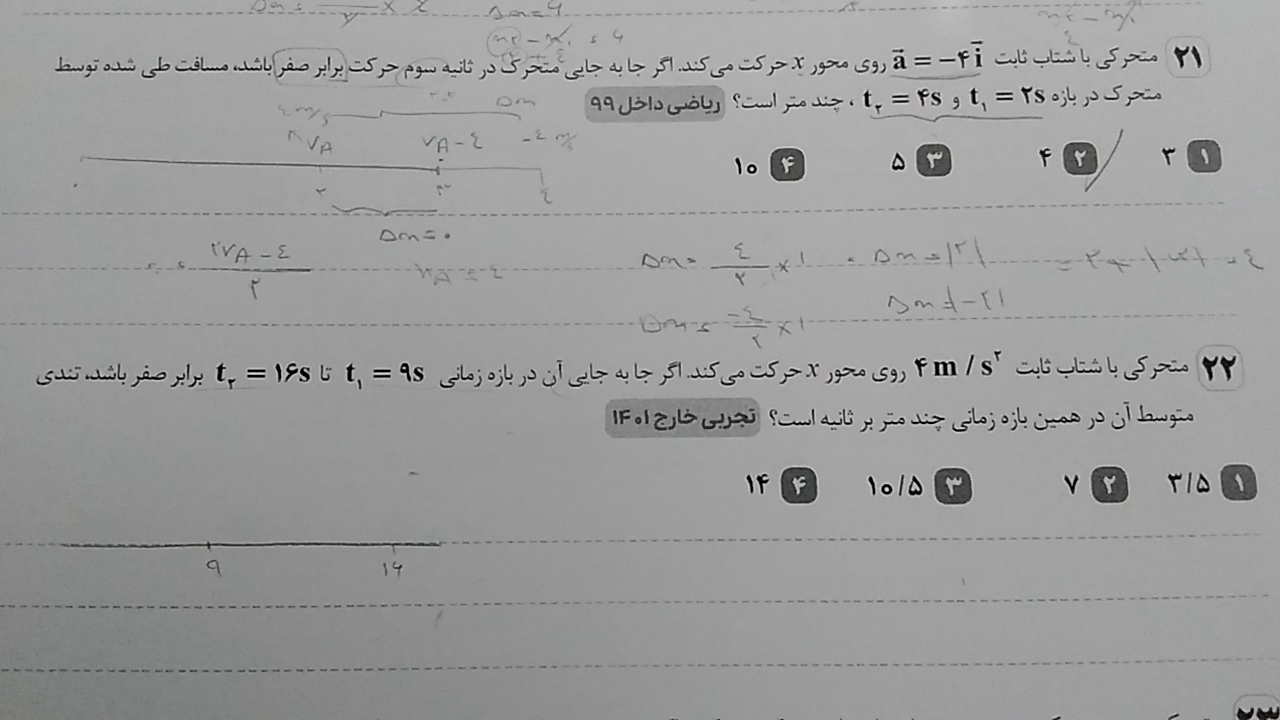 Δm = 9
۲۱ متحرکی با شتاب ثابت a = −۴i روی محور x حرکت می‌کند. اگر جا به جایی متحرک در ثانیه سوم حرکت برابر صفر باشد، مسافت طی شده توسط
متحرک در بازه t₁ = ۲s و t₂ = ۴s ، چند متر است؟ ریاضی داخل ۹۹
۱ ۳ ۲ ۴ ۳ ۵ ۴ ۱۰
VA VA − ٤
۲ ۳ ٤
Δm = ۰
۲VA − ٤ / ۲
Δm = ٤/۲ × ۱
Δm = −٤/۲ × ۱
۲۲ متحرکی با شتاب ثابت ۴ m / s² روی محور x حرکت می‌کند. اگر جا به جایی آن در بازه زمانی t₁ = ۹s تا t₂ = ۱۶s برابر صفر باشد، تندی
متوسط آن در همین بازه زمانی چند متر بر ثانیه است؟ تجربی خارج ۱۴۰۱
۱ ۳/۵ ۲ ۷ ۳ ۱۰/۵ ۴ ۱۴
۹ ۱۶
۲۳